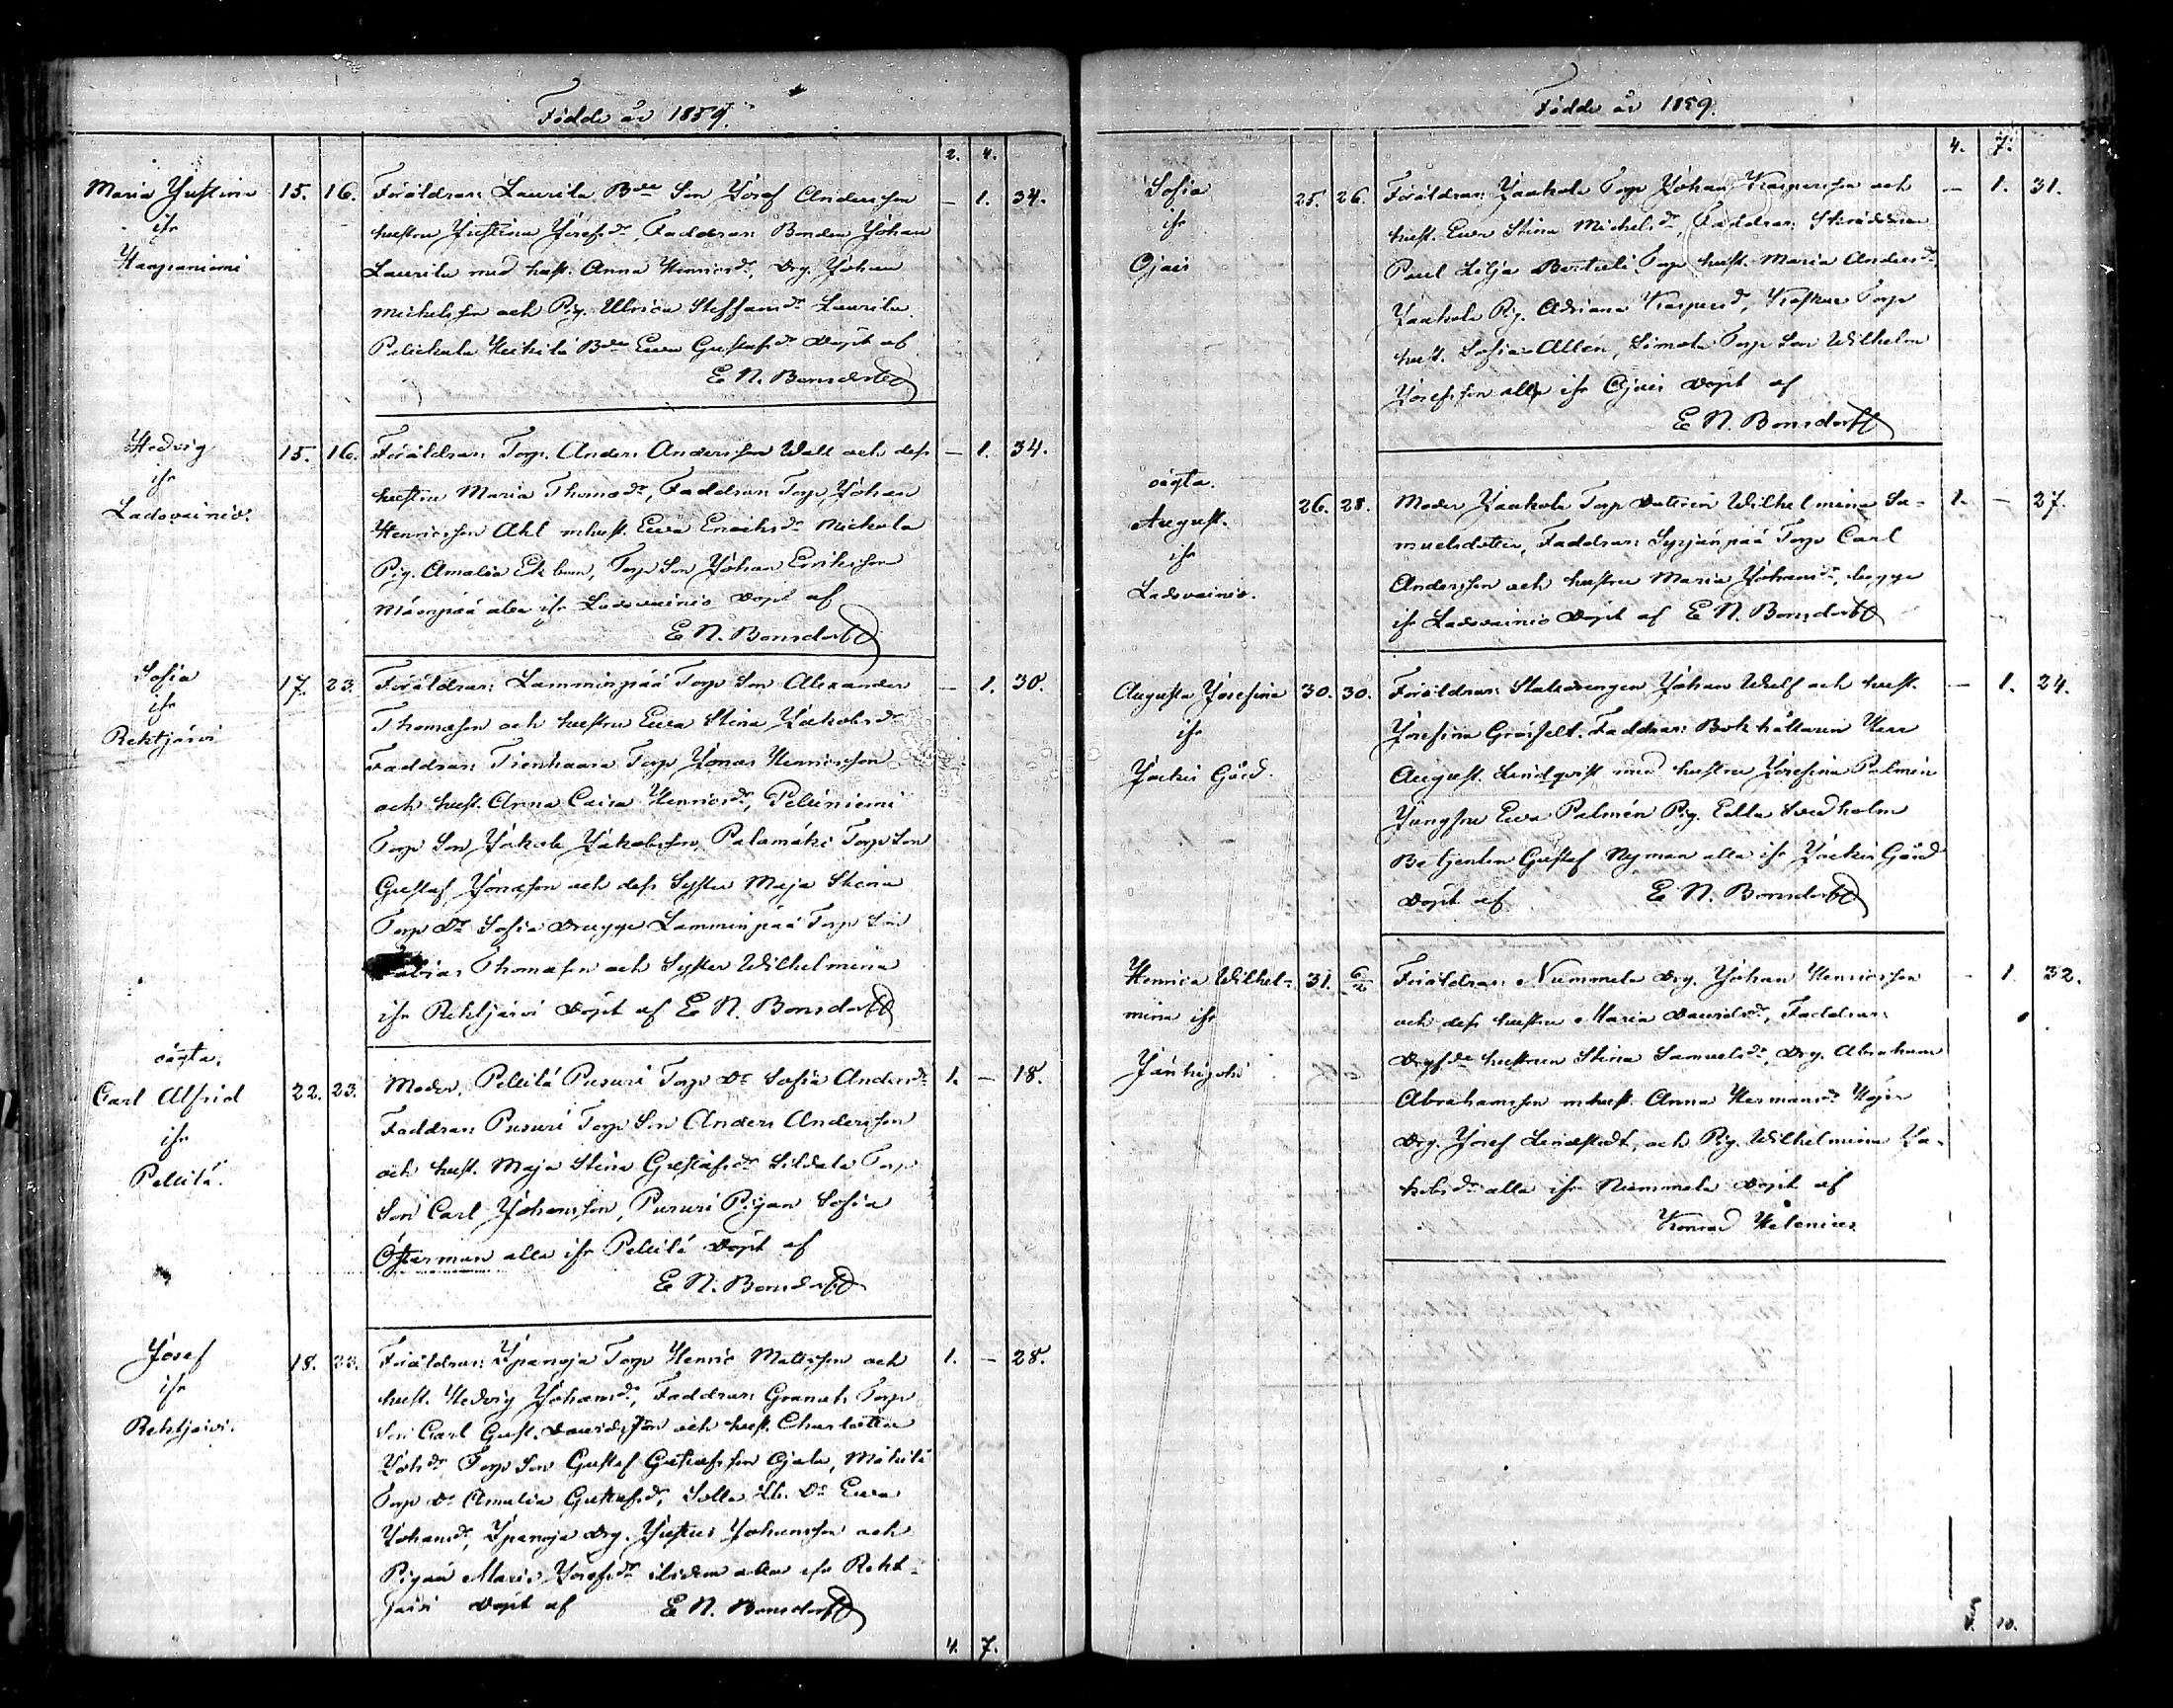 Födde år 1859.
2. 4.
Maria Justina 15. 16. Föräldrar: Laurila Bde Son Josef Andersson — 1. 34.
ifr hustru Justina Josefsdr, Faddrar: Bonden Johan
Haapaniemi Laurila med hust. Anna Henricsdr, Drg. Johan
Michelsson och Pig. Ulrica Steffansdr Laurila
Heikilä Bde Ewa Gustafsdr Döpt af
E N. Bonsdorff
Hedvig 15. 16. Föräldrar: Torp. Anders Andersson Wall och dess — 1. 34.
ifr hustru Maria Thomasdr, Faddrar: Torp. Johan
Ladovainio. Henricsson Ahl mhust. Ewa Ericksdr Michola
Pig. Amalia Ekbom, Torp Son Johan Eriksson
Mäenpää alla ifr Ladovainio Döpt af
E N. Bonsdorff
Sofia 17. 23. Föräldrar: Lamminpää Torp Son Alexander — 1. 30.
ifr Thomasson och hustru Ewa Stina Jakobsdr
Rehtjärvi Faddrar: Tienhaara Torp Jonas Henricsson
och hust. Anna Caisa Henricsdr, Pelliniemi
Torp Son Jakob Jakobsson, Palomäki Torp Son
Gustaf Jonasson och dess Syster Maja Stina
Torp Dr Sofia Drugge Lamminpää Torp Son
Tobias Thomasson och Syster Wilhelmina
ifr Rehtjärvi Döpt af E N. Bonsdorff
oägta.
Carl Alfrid 22. 23. Moder: Pellilä Pusuri Torp Dr Sofia Andersdr 1. — 18.
ifr Faddrar: Pusuri Torp Son Anders Andersson
Pellilä. och hust. Maja Stina Gustafsdr Sildala Torp
Son Carl Johansson, Pusuri Pigan Sofia
Österman alla ifr Pellilä Döpt af
E N. Bonsdorff
Josef 18. 23. Föräldrar: Ypänoja Torp Henric Mattsson och 1. — 28.
ifr hust. Hedvig Johansdr, Faddrar: Torp
Rehtjärvi. Son Carl Gust. Davidsson och hust. Charlotta
Johdr Torp Son Gustaf Gustafsson Ojala, Mäkilä
Torp Dr Amalia Gustafsdr, Dr Ewa
Johansdr, Ypänoja Drg. Justus Johansson och
Pigan Maria Josefsdr ibidem alla ifr Reht-
järvi Döpt af E N. Bonsdorff
4. 7.
Födde år 1859.
4. 7.
Sofia 25. 26. Föräldrar: Jaakola Torp Johan Kaspersson och — 1. 31.
ifr hust. Ewa Stina Michelsdr, Faddrar: Skräddaren
Ojais Paul Lilja Torp hust. Maria Andersdr
Jaakola Pig. Adriana Kaspersdr, Torp
hust. Sofia Allén, Simola Torp Son Wilhelm
Josefsson alla ifr Ojais Döpt af
E N. Bonsdorff
oägta.
August. 26. 28. Moder Jaakola Torp Dotren Wilhelmina Sa- 1. — 27.
ifr muelsdotter, Faddrar: Syrjänpää Torp Carl
Ladovainio. Andersson och hustru Maria Johansdr, begge
ifr Ladovainio Döpt af E N. Bonsdorff
Augusta Josefina 30. 30. Föräldrar: Stalldrengen Johan Wulf och hust. — 1. 24.
ifr Josefina Faddrar: Bokhållaren Herr
Jackis Gård. August Lindqvist med hustru Josefina Palmén
Jungfru Ewa Palmén Pig. Edla Svedholm
Betjenten Gustaf Nyman alla ifr Jackis Gård
Döpt af E N. Bonsdorff
Henrica Wilhel- 31. 6/2 Föräldrar: Nummela Drg. Johan Henricsson — 1. 32.
mina ifr och dess hustru Maria Davidsdr, Faddrar:
Jänhijoki hustrun Stina Samuelsdr, Drg. Abraham
Abrahamsson mhust. Anna Hermansdr
Drg. Josef Lindstedt, och Pig. Wilhelmina Ja-
kobsdr alla ifr Nummela Döpt af
Konrad Helenius
10.